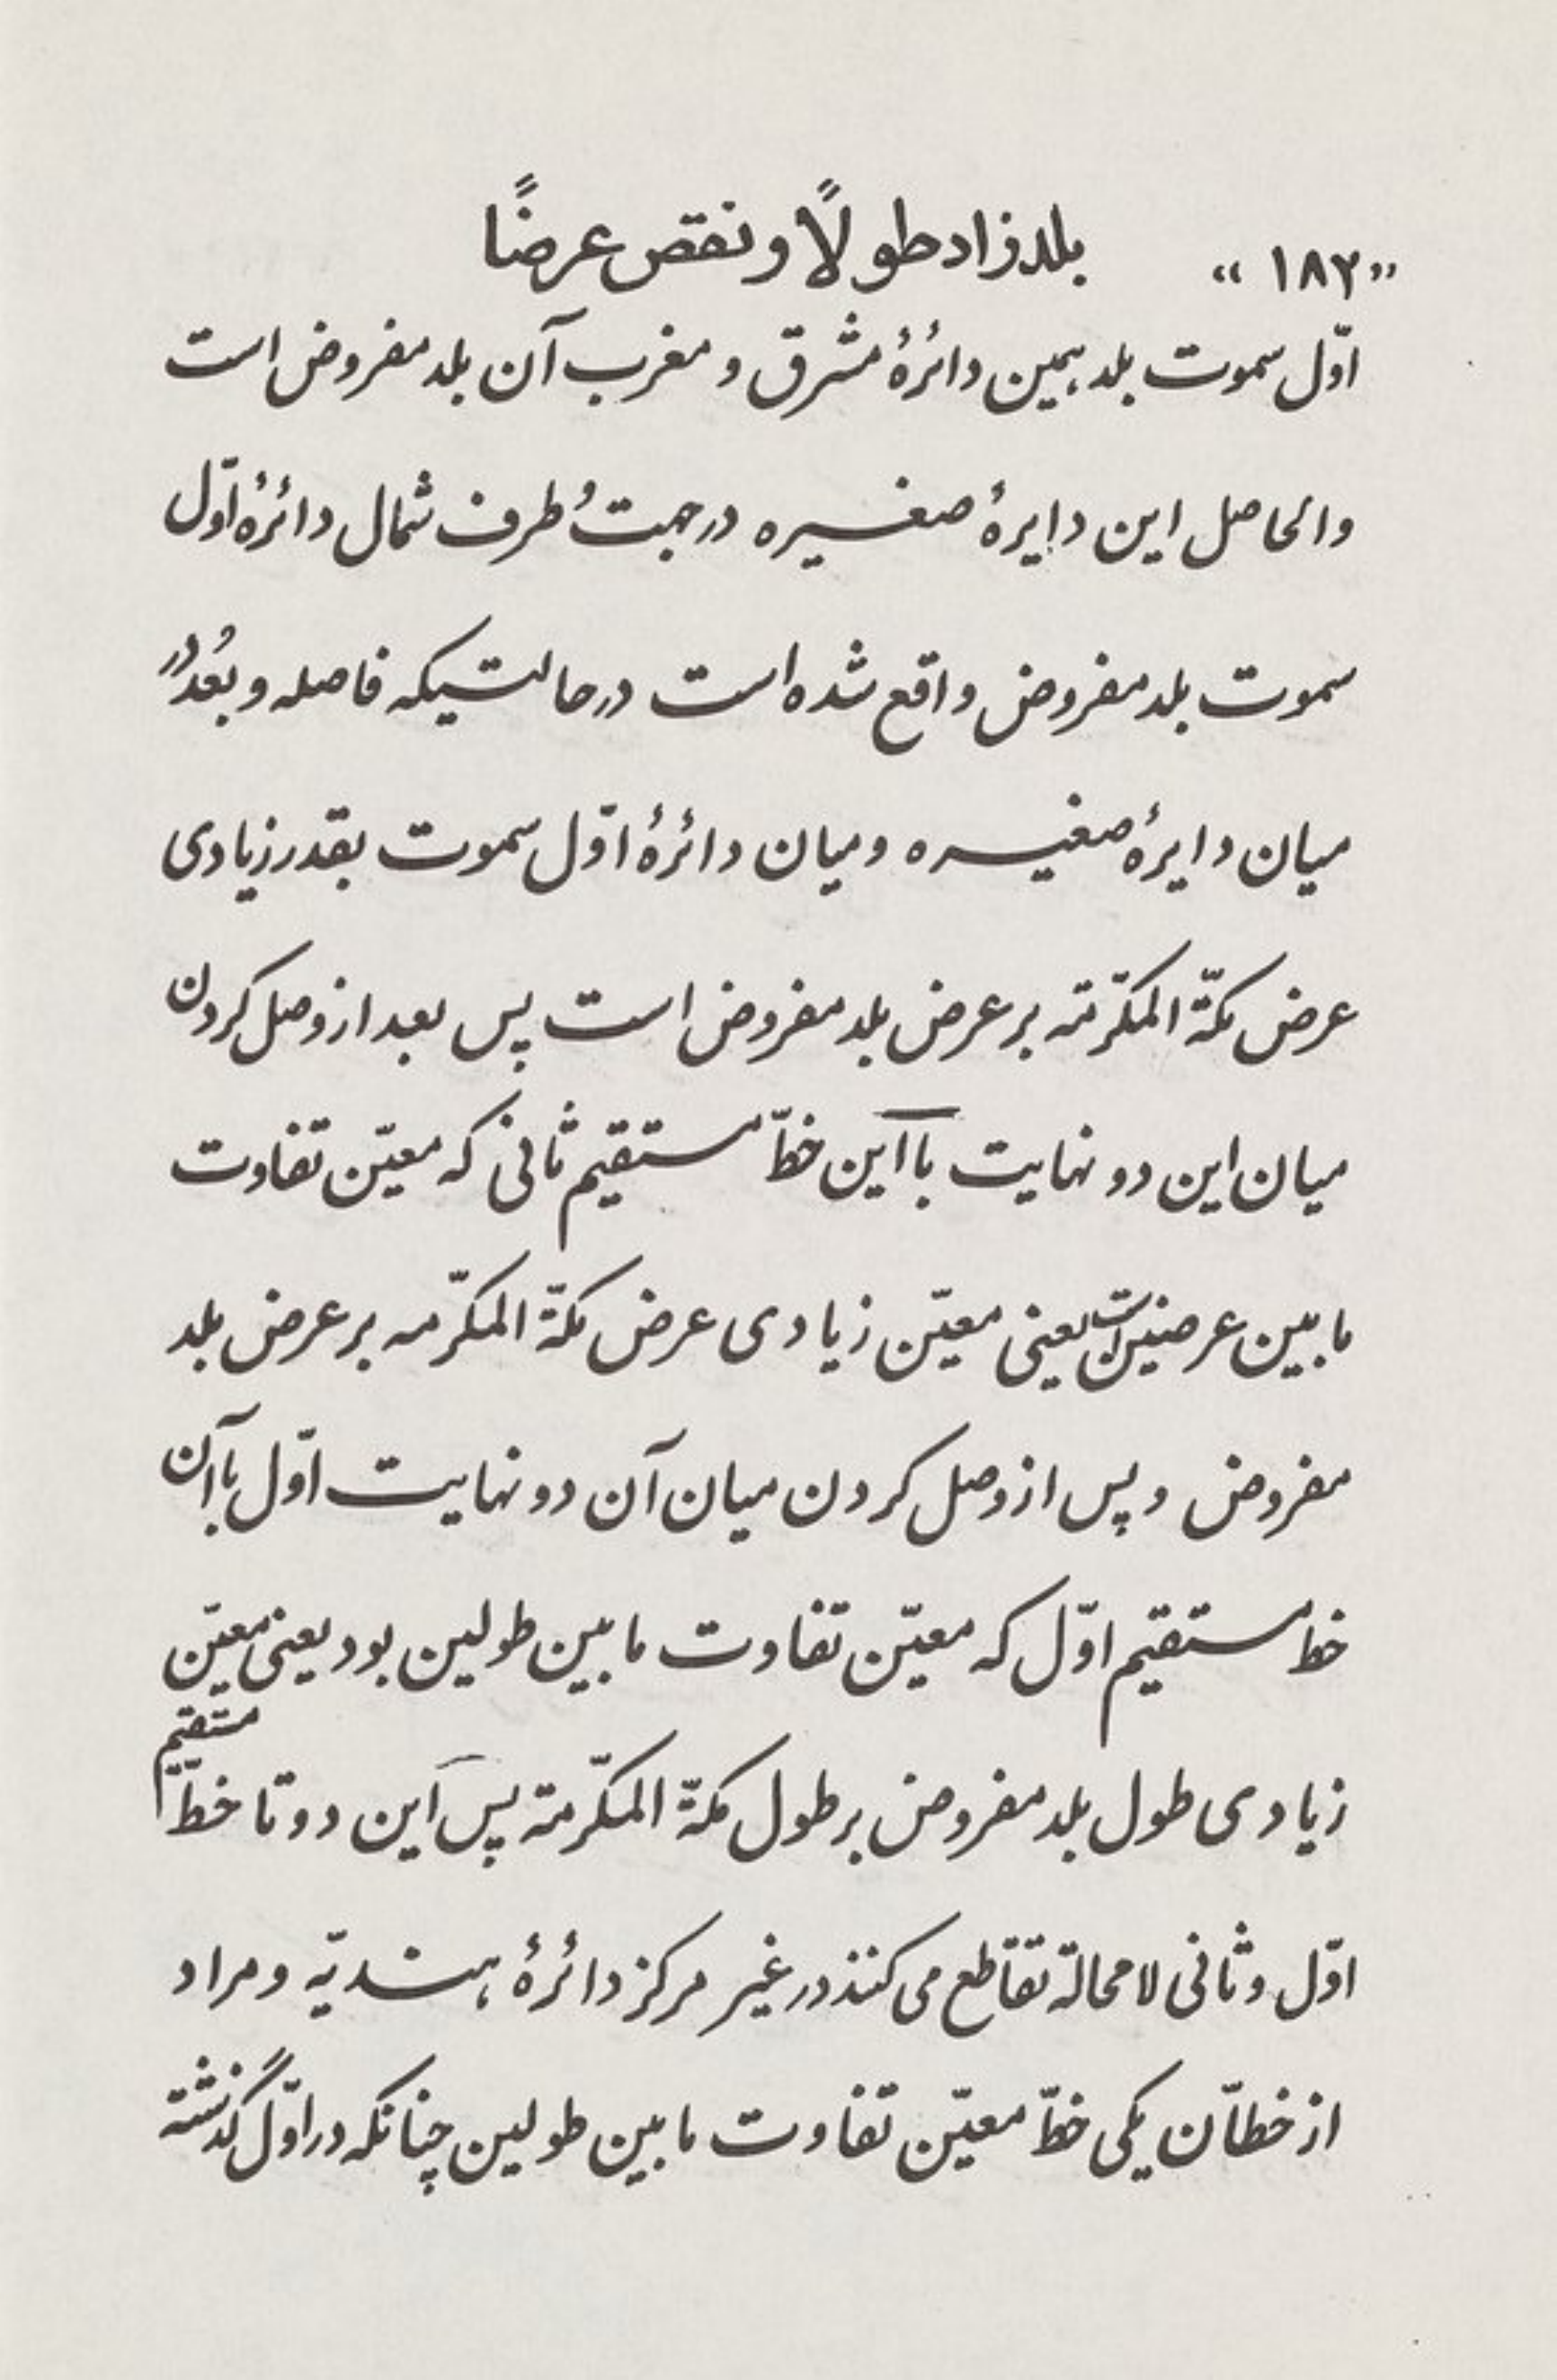 «۱۸۲» بلد زاد طولًا و نقص عرضًا
اوّل سموت بلد همین دائرهٔ مشرق و مغرب آن بلد مفروض است
والحاصل این دایرهٔ صغیره در جهت و طرف شمال دائرهٔ اوّل
سموت بلد مفروض واقع شده است در حالتیکه فاصله و بُعد در
میان دایرهٔ صغیره و میان دائرهٔ اوّل سموت بقدر زیادی
عرض مکّة المکرّمته بر عرض بلد مفروض است پس بعد از وصل کردن
میان این دو نهایت با این خطّ مستقیم ثانی که معیّن تفاوت
ما بین عرضین است یعنی معیّن زیادی عرض مکّة المکرّمه بر عرض بلد
مفروض و پس از وصل کردن میان آن دو نهایت اوّل با آن
خط مستقیم اوّل که معیّن تفاوت ما بین طولین بود یعنی معیّن
زیادی طول بلد مفروض بر طول مکّة المکرّمة پس این دو تا خطّ مستقیم
اوّل و ثانی لا محالة تقاطع می کنند در غیر مرکز دائرهٔ هندیّه و مراد
از خطاّن یکی خطّ معیّن تفاوت ما بین طولین چنانکه در اوّل گذشته